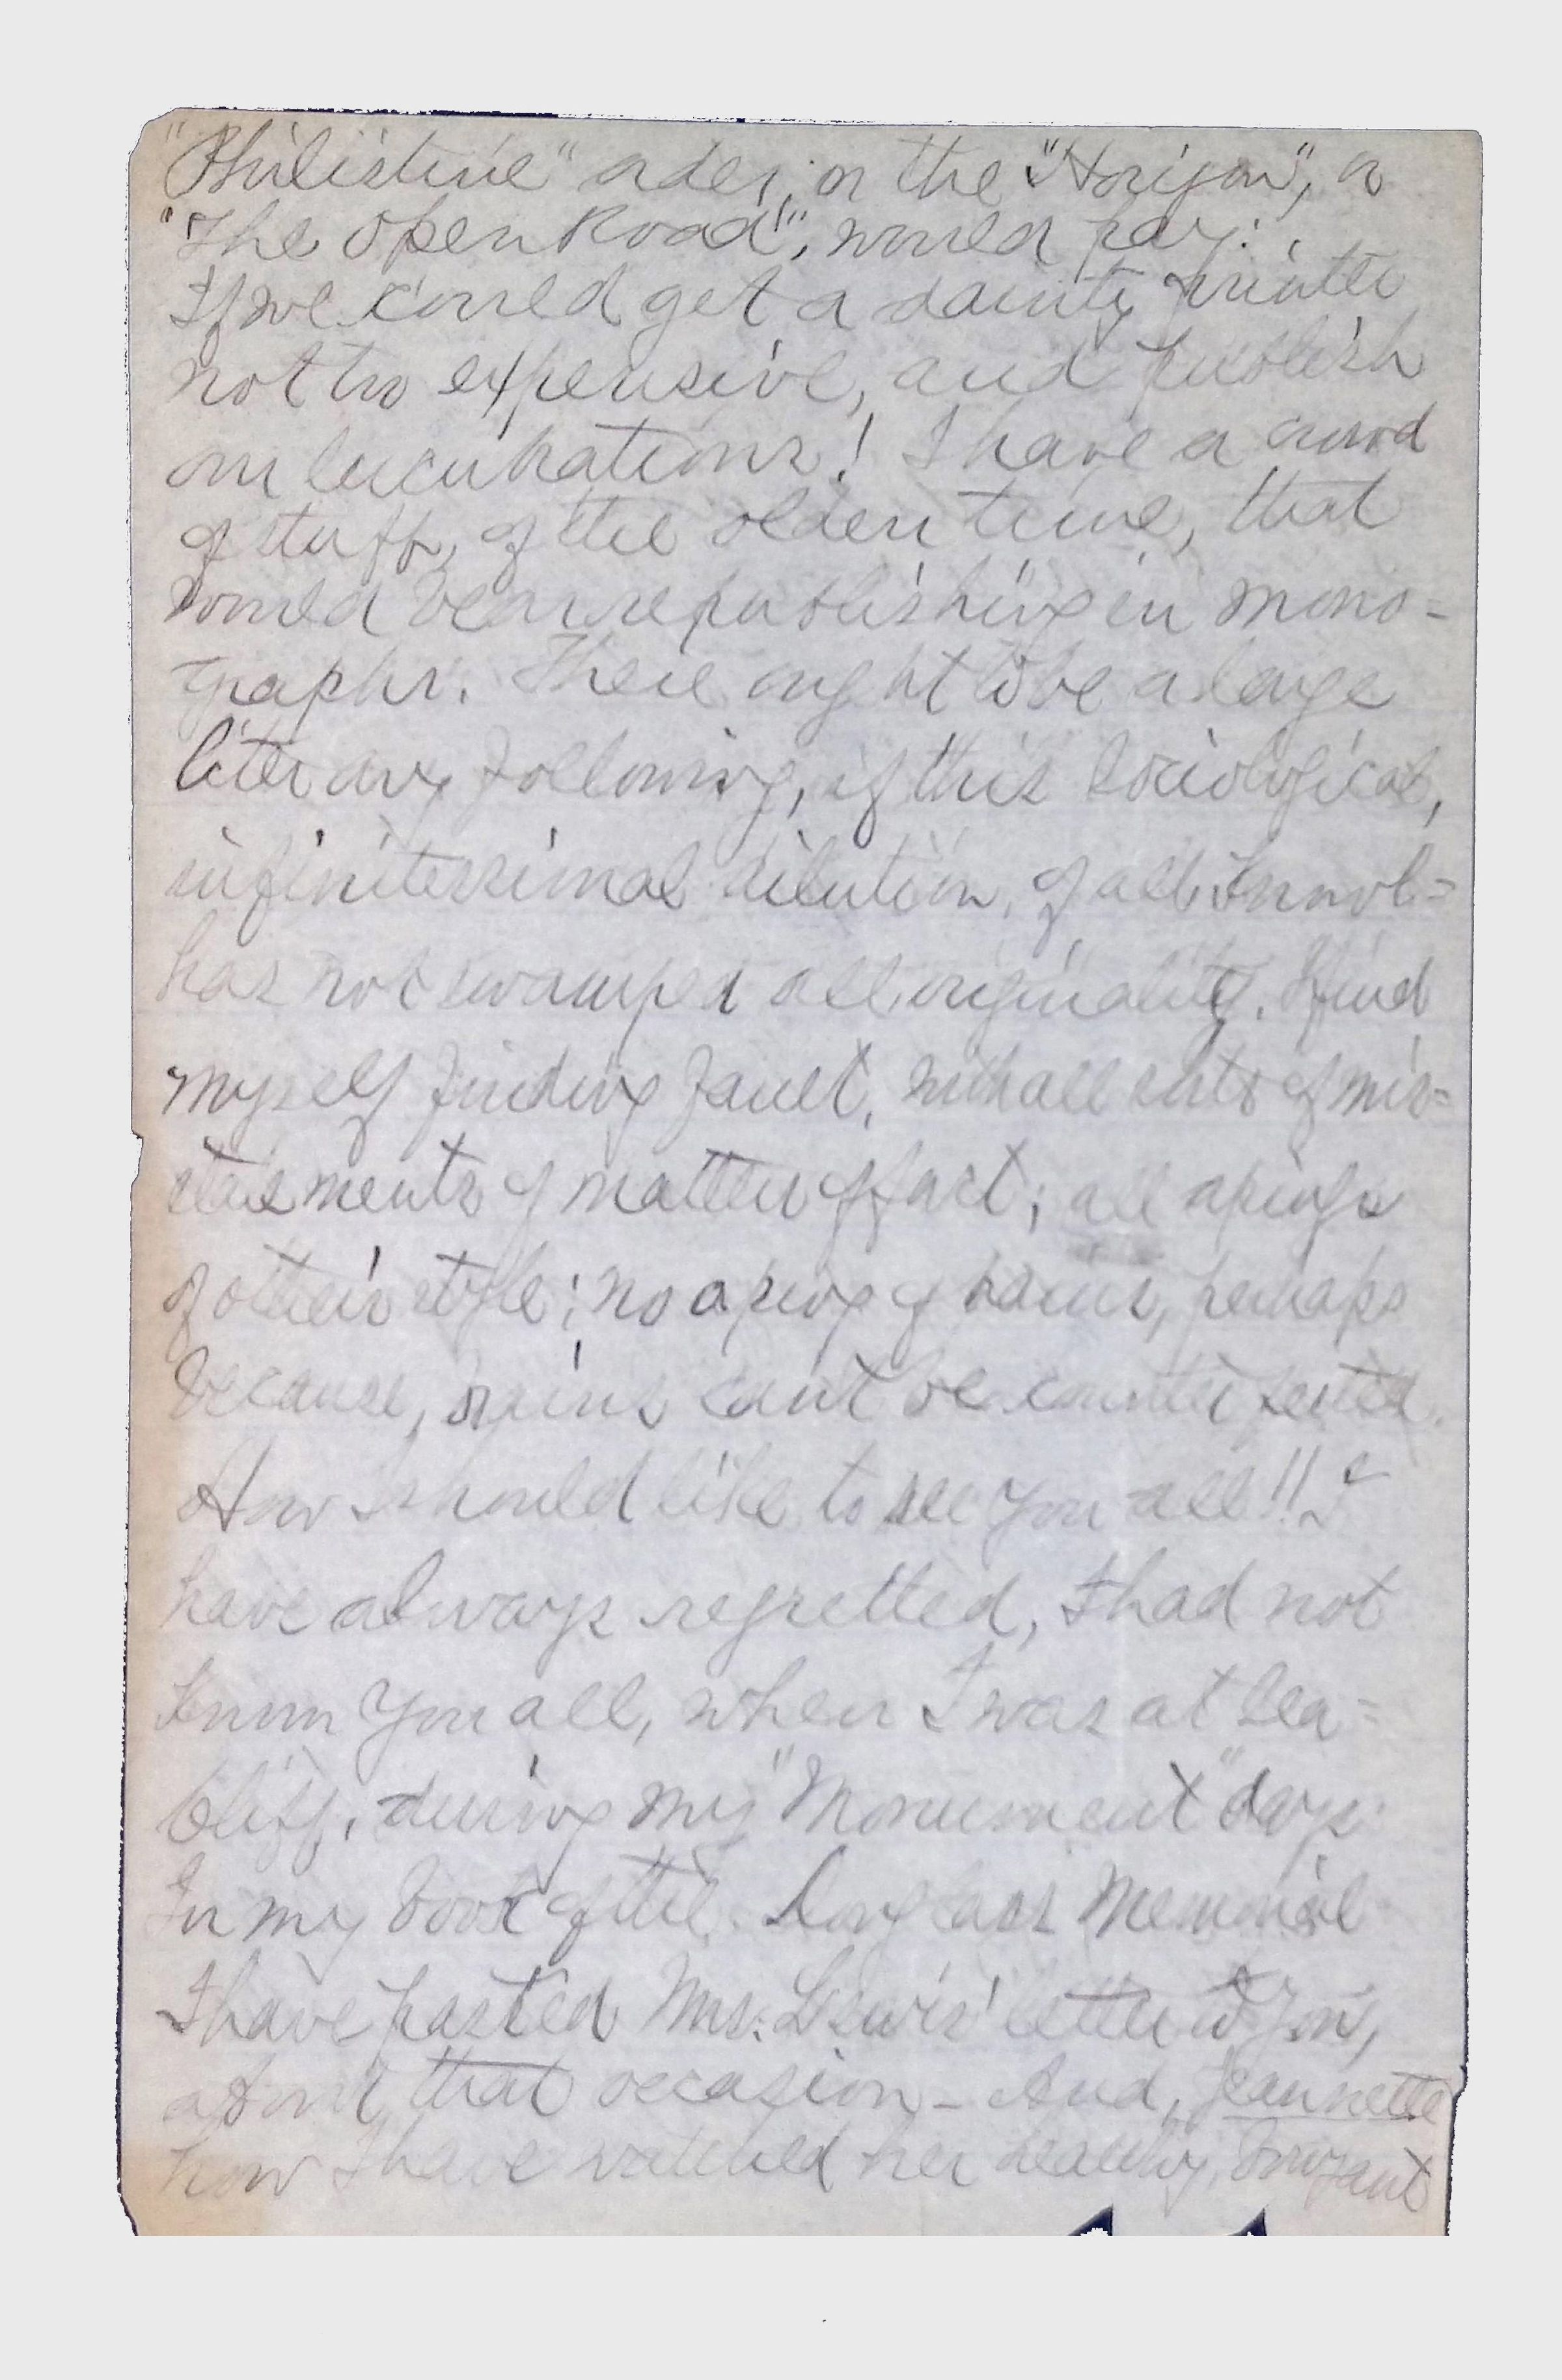 "Philistine" order, or the "Horizon", or
"The Open Road", would pay.
If we could get a dainty printer
not too expensive, and publish
our lucubrations! I have a crowd
of stuff, of the olden time, that
would bear republishing in mono=
graphs. There ought to be a large
literary following, if this sociological,
infinitessimal dilution, of all
has not swamped all originality. I find
myself finding fault, with all sorts of mis=
statements of matter of fact; all apings
of others style; no aping of brains, perhaps
because, brains cant be counterfeited.
How I should like to see you all!! I
have always regretted, I had not
known you all, when I was at Sea=
Cliff, during my "Monument" days.
In my book of the Douglass Memorial
I have pasted Mrs. Lewis' letter to you,
about that occasion - And, Jeannette
how I have watched her healthy, buoyant